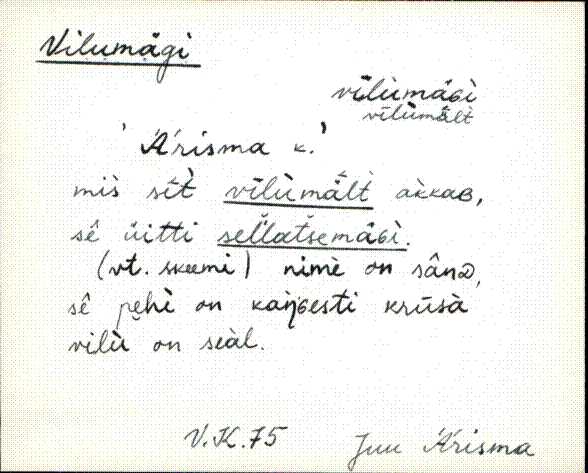 Vilumägi
vīlùmäɢì
vīlùmält̀
'Ärisma k.'
mis sīt̀ vīlùmält̀ akkaʙ,
sê üitti sellatsemäɢì.
(vt. skeemi) nimè on sânᴅ,
sê pęhì on kaŋ̀ɢesti krūsà
vilù on seàl.
V.K.75
Juu Ärisma